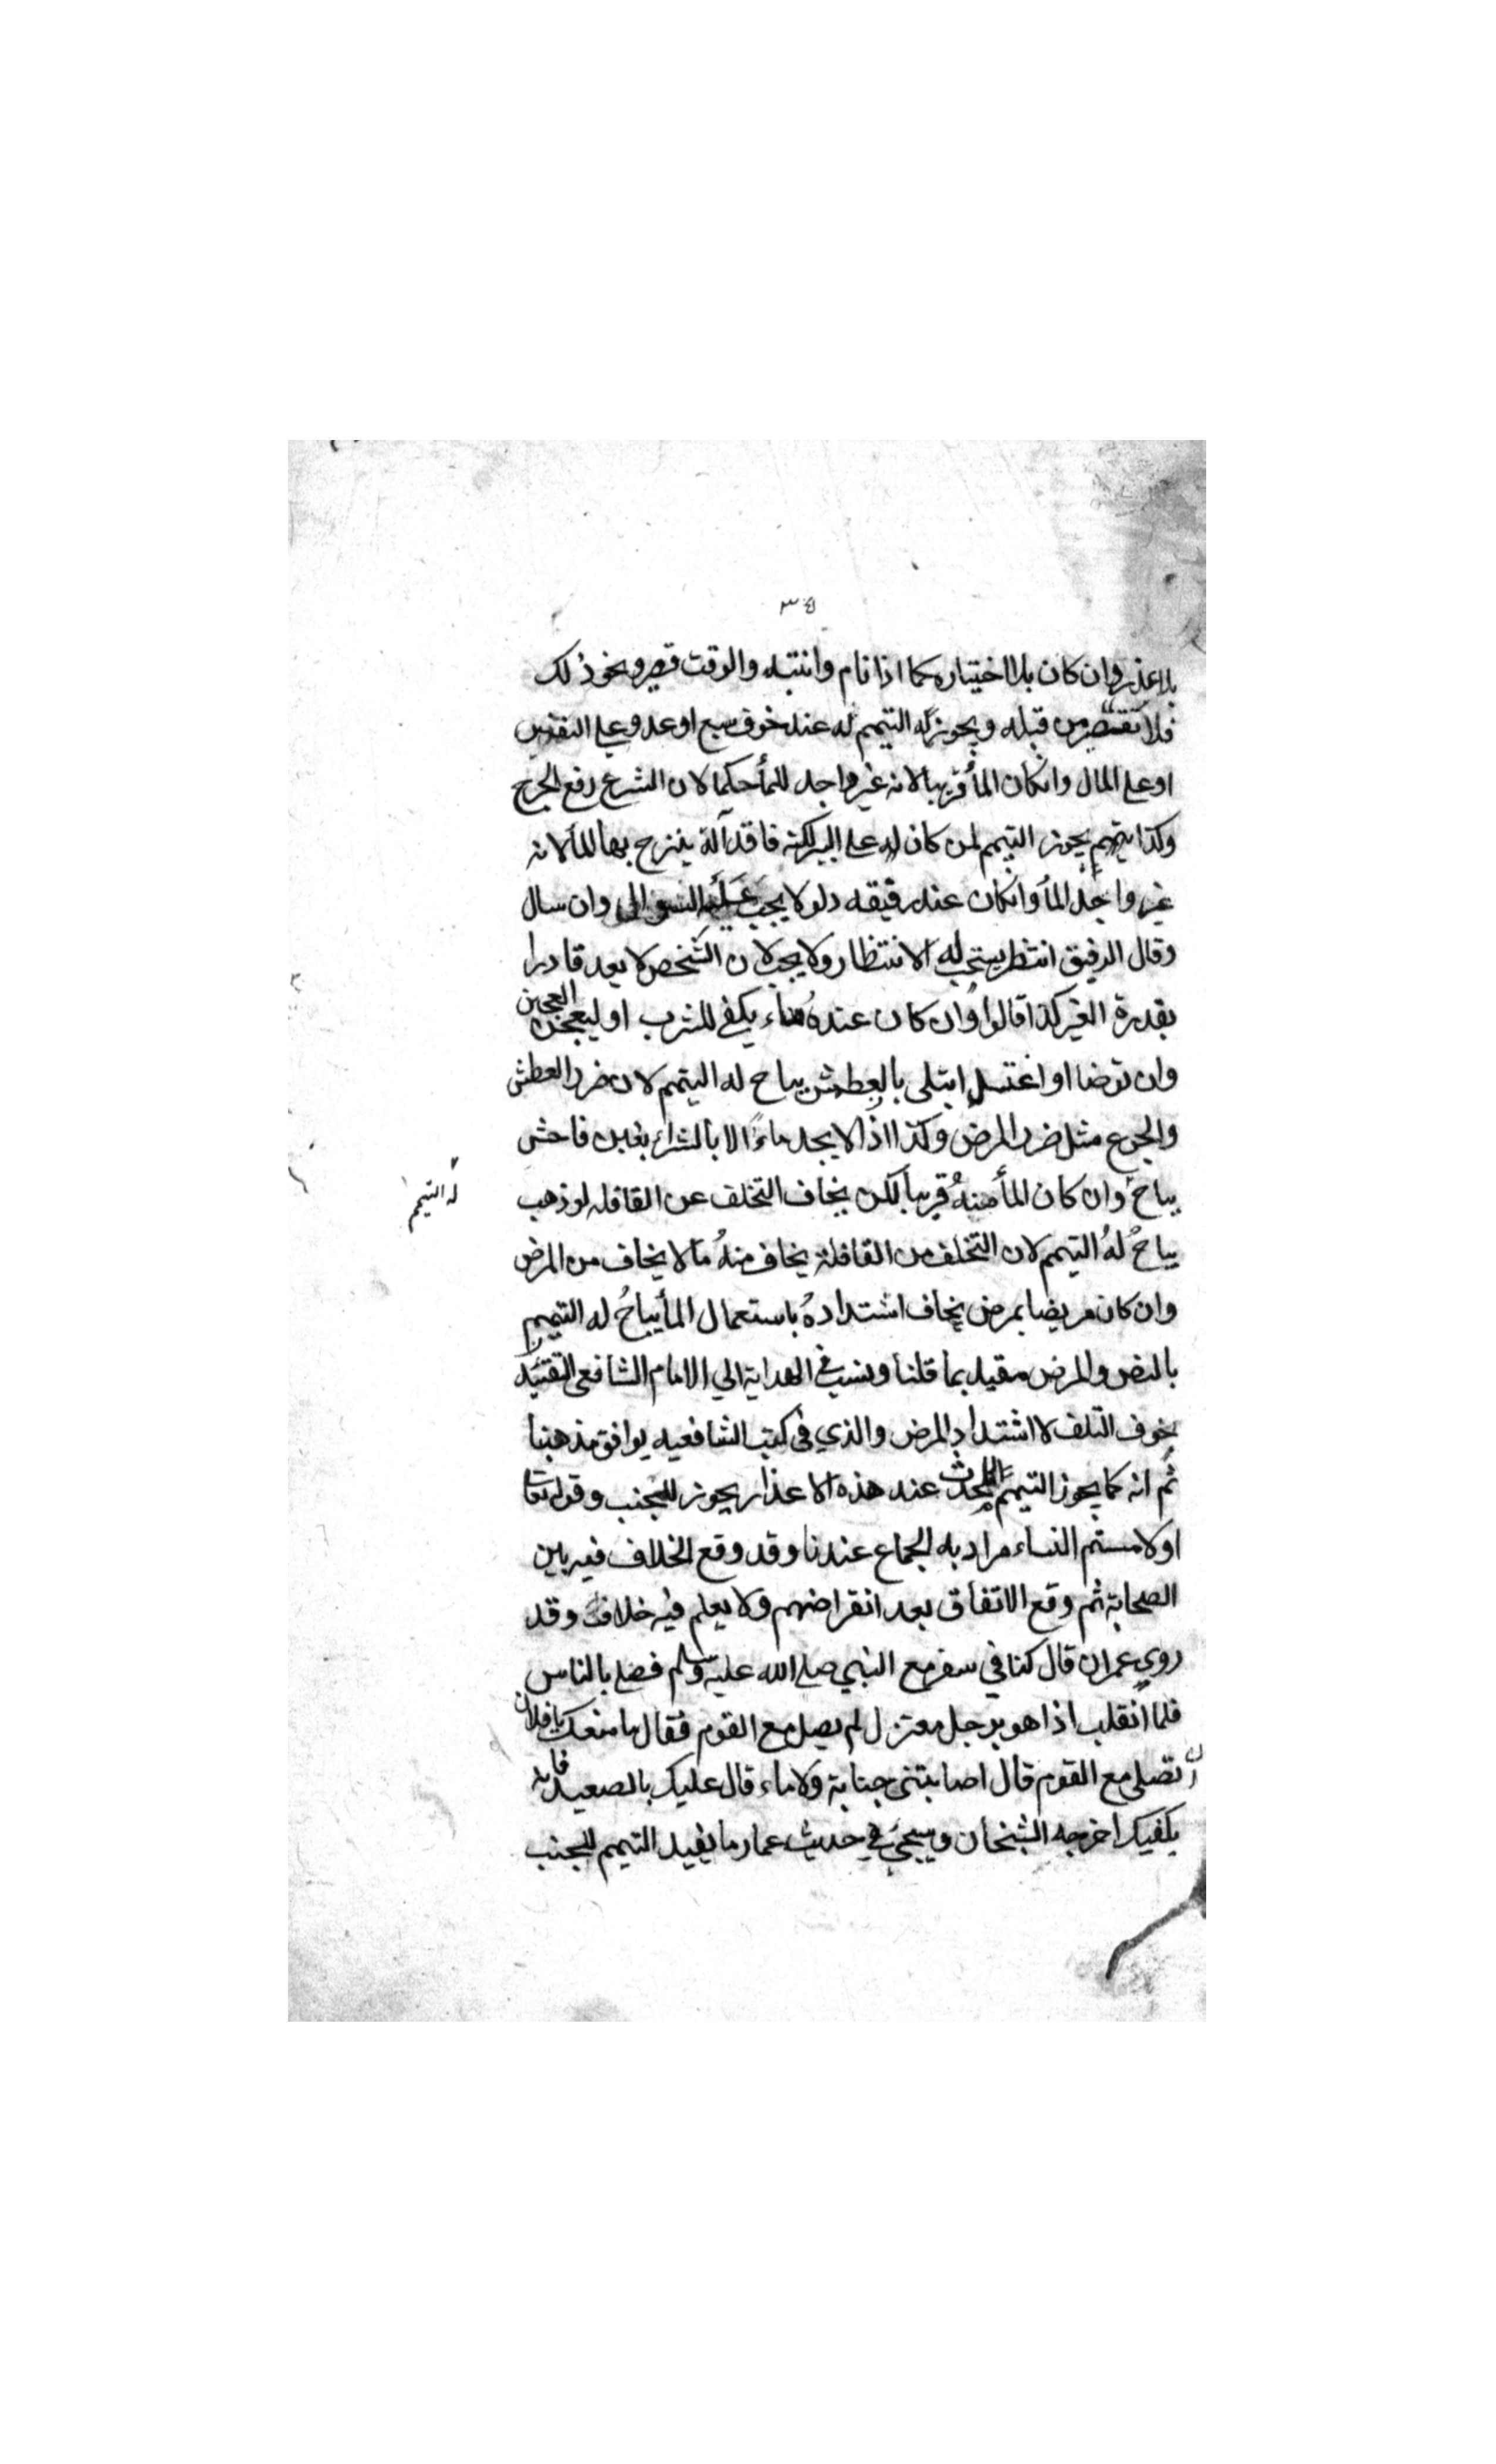 ٣٤
بلا عذر وان كان بلا اختياره كما اذا نام وانتبه والوقت قصير ونحو ذلك
فلا تقصير من قبله ويجوز له التيمم له عند خوف سبع او عدو علي النفس
او علي المال وانكان المأ قريبا لانه غير واجد للمأ حكما لان الشرع رفع الحرج
وكذا يتيمم يجوز التيمم لمن كان له علي البير لكنه فاقد آلة ينزح بها المأ لانه
غير واجد المأ وانكان عند رفيقه دلو لا يجب عليه السوال وان سال
وقال الرفيق انتظر يستحب له الانتظار ولا يجب لان الشخص لا يعد قادرا
بقدرة الغير كذا قالوا وان كان عنده ماء يكفي للشرب او ليعجن العجين
وان توضا او اغتسل ابتلى بالعطش يباح له التيمم لان ضرر العطش
والجوع مثل ضرر المرض وكذا اذا لا يجد ماء الا بالشراء بغبن فاحش
يباح وان كان المأ منه قريبا لكن يخاف التخلف عن القافله لو ذهب
له التيمم
يباح له التيمم لان التخلف من القافلة يخاف منه ما لا يخاف من المرض
وان كان مريضا بمرض يخاف اشتداده باستعمال المأ يباح له التيمم
بالنص والمرض مقيد بما قلنا ونسب في الهداية الي الامام الشافعي التقييد
بخوف التلف لا اشتداد المرض والذي في كتب الشافعيه يوافق مذهبنا
ثم انه كما يجوز التيمم للحدث عند هذه الاعذار يجوز للجنب وقوله تعا
او لامستم النساء مراد به الجماع عندنا وقد وقع الخلاف فيه بين
الصحابة ثم وقع الاتفاق بعد انقراضهم ولا يعلم فيه خلاف وقد
روي عمران قال كنا في سفر مع النبي صلي الله عليه وسلم فصلي بالناس
فلما انقلب اذا هو برجل معتزل لم يصل مع القوم فقال ما منعك يا فلان
ان تصلي مع القوم قال اصابتني جنابة ولا ماء قال عليك بالصعيد فانه
يكفيك اخرجه الشيخان وسيجئ في حديث عمار ما يفيد التيمم للجنب